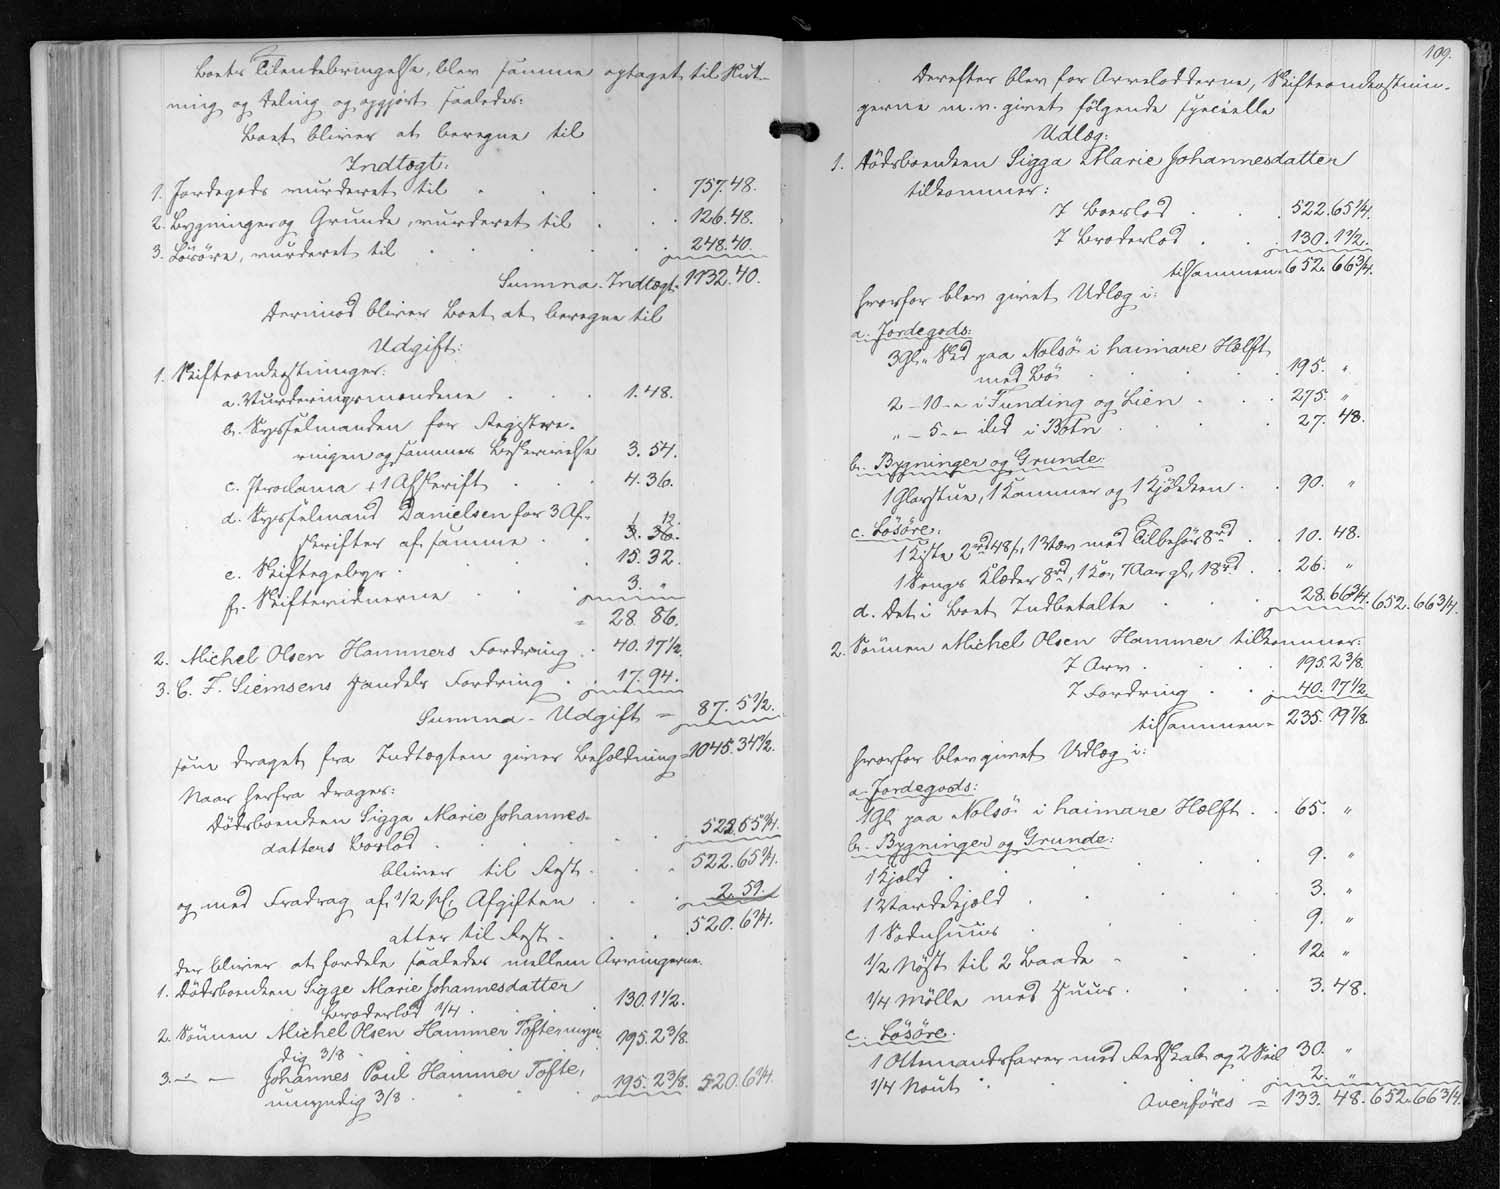 Boets Tilendebringelse, blev samme optaget til Slut-
ning og Deling og opgjort saaledes:
Boet bliver at beregne til
Indtægt:
1. Jordegods vurderet til 757.48.
2. Bygninger og Grunde, vurderet til 126.48.
3. Løsøre, vurderet til 248.40.
Summa Indtægt 1132.40.
Derimod bliver Boet at beregne til
Udgift:
1. Skifteomkostninger:
a. Vurderingsmændene 1.48.
b. Sysselmanden for Registre-
ringen og sammes Beskrivelse 3.54.
c. Proclama + 1 Afskrift 4.36.
d. Sysselmand Danielsen for 3 Af-
skrifter af samme 1 12.
3. 36.
e. Skiftegebyr 15.32.
f. Skiftevidnerne 3. "
= 28. 86.
2. Michel Olsen Hammers Fordring 40.17½.
3. C. F. Siemsens Handels Fordring 17.94.
Summa - Udgift = 87.5½.
som draget fra Indtægten giver Beholdning = 1045.34½.
Naar herfra drages:
Dødsboenken Sigga Marie Johannes-
datters Boeslod 522.65¼.
bliver til Rest 522.65¼.
og med Fradrag af ½ pCt Afgiften 2.59.
atter til Rest 520.6¼.
der bliver at fordele saaledes mellem Arvingerne.
1. Dødsboenken Sigge Marie Johannesdatter
Broderlod ¼ 130.1½.
2. Sønnen Michel Olsen Hammer Tofte myn-
dig 3/8 195.2 3/8.
3. — " — Johannes Poul Hammer Tofte,
umyndig 3/8 195.2 3/8. 520.6¼.
109.
Derefter blev for Arvelodderne, Skifteomkostnin-
gerne m. v. givet følgende specielle
Udlæg:
1. Dødsboenken Sigga Marie Johannesdatter
tilkommer:
I Boeslod 522.65¼.
I Broderlod 130.1½.
tilsammen 652.66¾.
hvorfor blev givet Udlæg i:
a. Jordegods:
3 Gl. " Skd paa Nolsø i haimare Hælft
med Bø 195. "
2 — 10 — " i Funding og Lien 275. "
" — 5 — " ibd i Botn 27. 48.
b. Bygninger og Grunde:
1 Glasstue, 1 Kammer og 1 Kjøkken 90. "
c. Løsøre:
1 Kiste 2rd 48s, 1 Væv med Tilbehør 8rd 10. 48.
1 Sengs Klæder 8rd, 1 Ko, 7 Aar gl, 18rd 26. "
d. Det i Boet Indbetalte 28.66¾. 652.66¾.
2. Sønnen Michel Olsen Hammer tilkommer:
I Arv 195.2 3/8.
I Fordring 40.17½.
tilsammen = 235.19 7/8.
hvorfor blev givet Udlæg i:
a. Jordegods:
1 Gl. paa Nolsø i haimare Hælft 65. "
b. Bygninger og Grunde:
1 Kjæld 9. "
1 Vardekjæld 3. "
1 Sodnhuus 9. "
½ Nøst til 2 Baade 12. "
¼ Mølle med Huus 3. 48.
c. Løsøre:
1 Ottemandsfarer med Redskab og 2 Seil 30. "
¼ Nout 2. "
Overføres = 133. 48. 652.66¾.